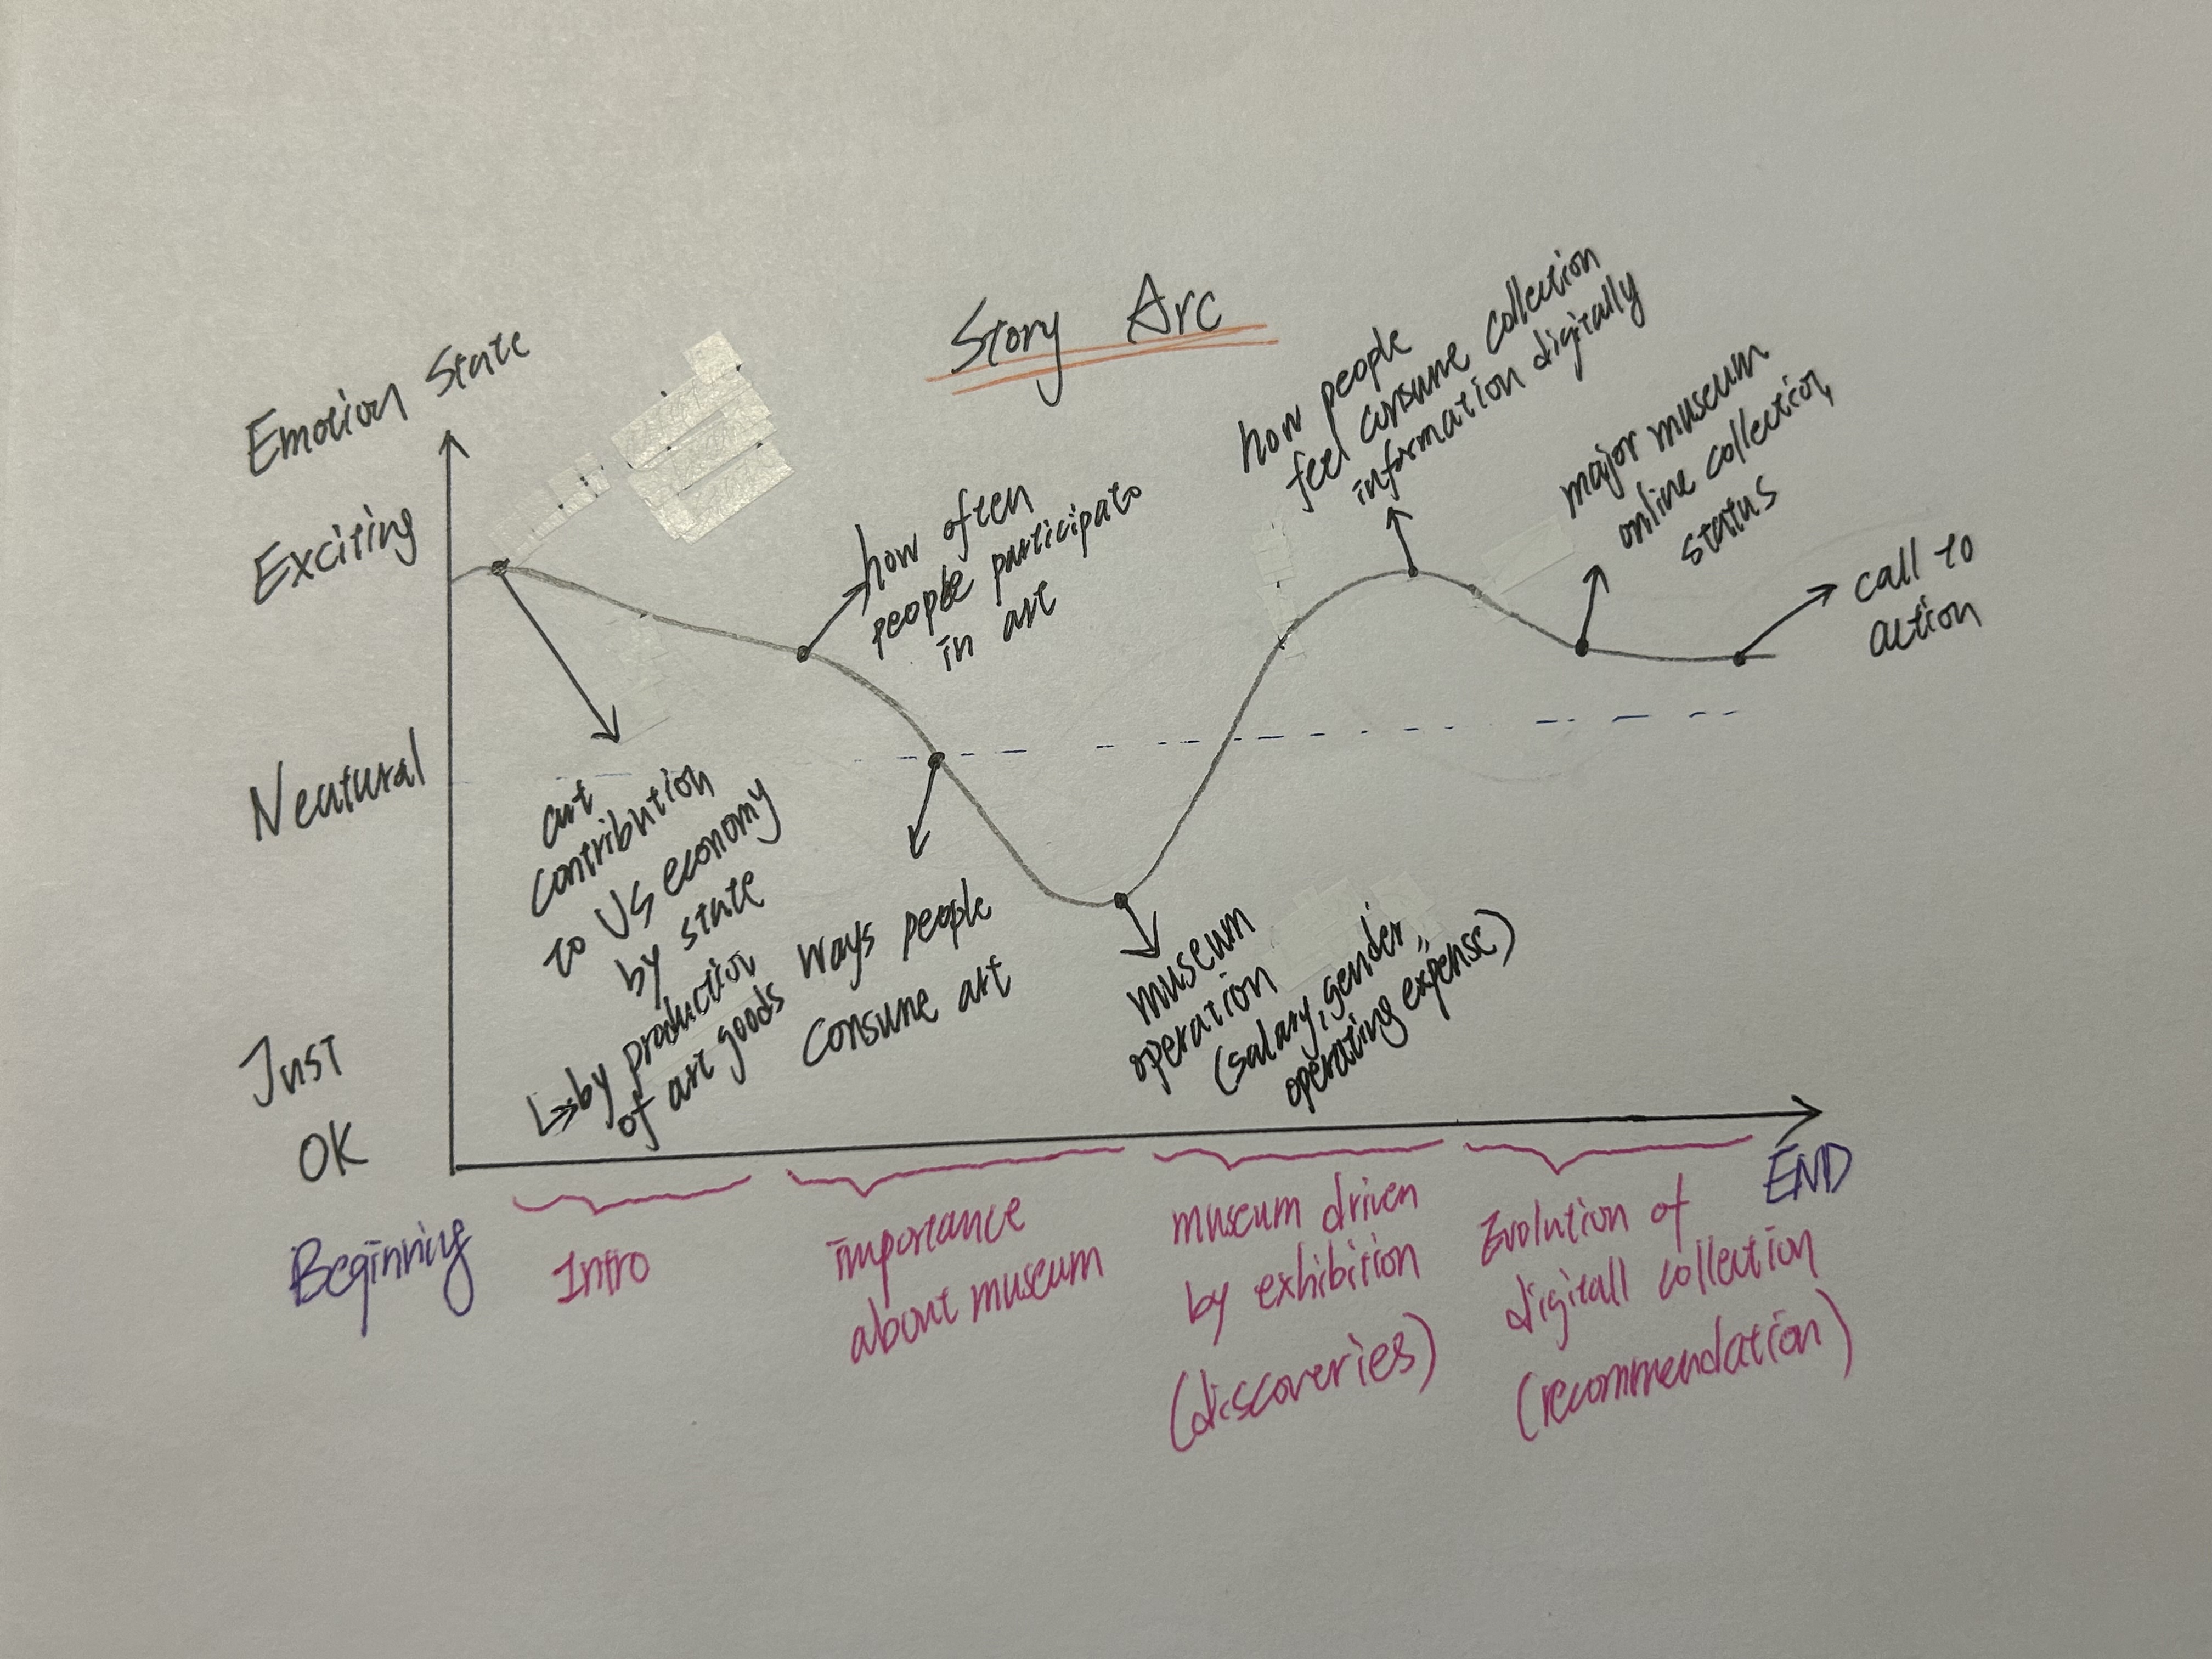 Story Arc
Emotion State
Exciting
Neatural
Just
OK
art
contribution
to US economy
by state
by production
of art goods
how often
people participate
in art
ways people
consume art
museum
operation
(salary, gender,
operating expense)
how people
feel consume collection
information digitally
major museum
online collection
status
call to
action
Beginning
Intro
importance
about museum
museum driven
by exhibition
(discoveries)
Evolution of
digitall collection
(recommendation)
END